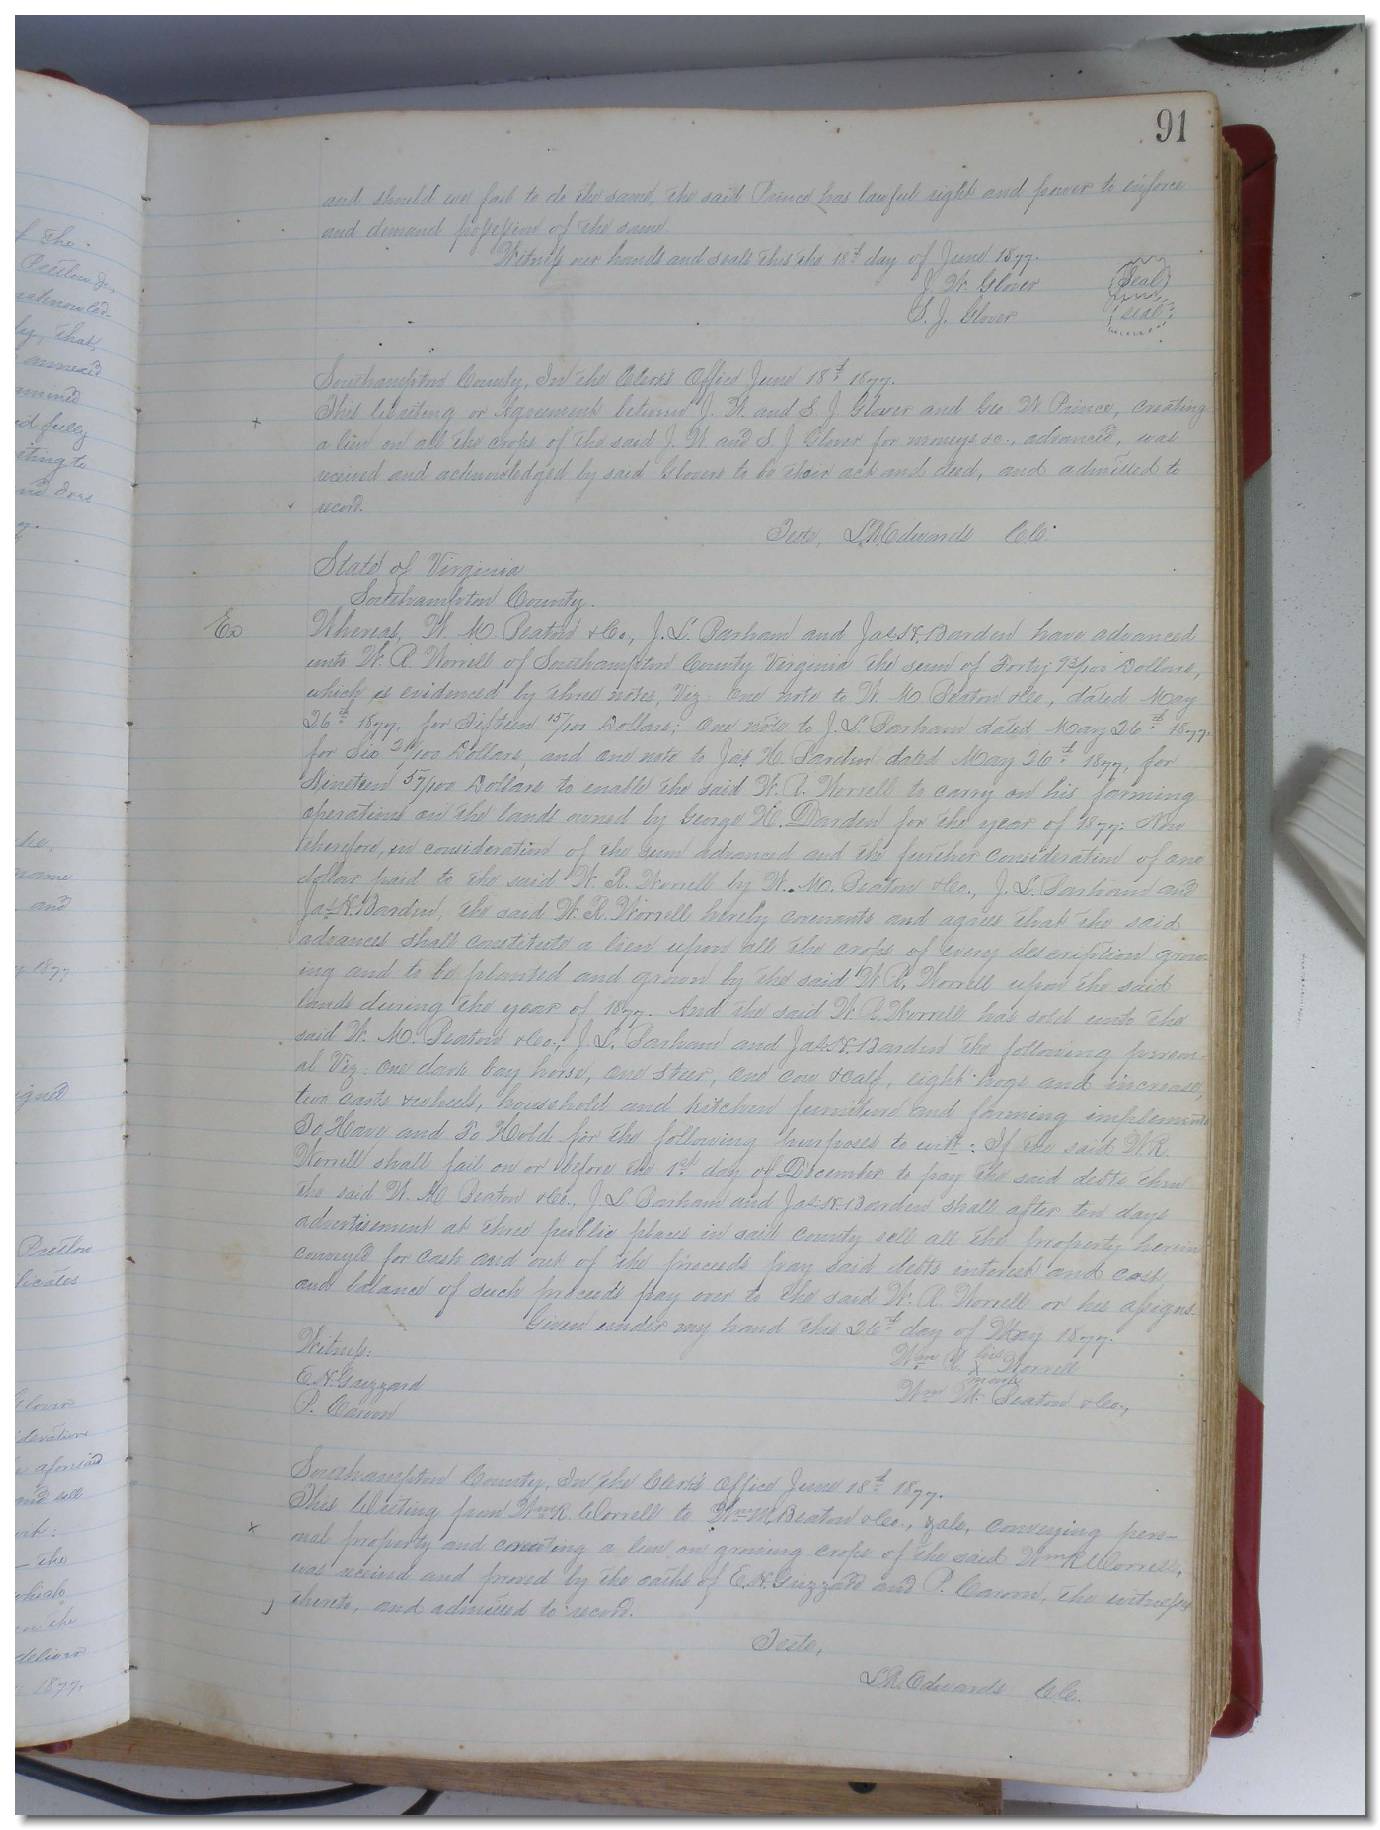 91
and should we fail to do the same, the said Prince has lawful right and power to inforce
and demand possession of the same
Witness our hands and seals this the 18th day of June 1877.
J. W. Glover (Seal)
S. J. Glover (seal)
Southampton County, In the Clerk's Office June 18th 1877.
This Writing or Agreement between J. W. and S J Glover and Geo W Prince, creating
a lien on all the crops of the said J. W. and S J Glover for moneys &c., advanced, was
received and acknowledged by said Glovers to be their act and deed, and admitted to
record.
Teste, L.R. Edwards C.C.
State of Virginia
Southampton County.
Ex
Whereas, W. M. Beaton & Co., J. L. Barham and Jas. H. Darden have advanced
unto W. R. Worrell of Southampton County Virginia the sum of Forty 93/100 Dollars,
which is evidenced by three notes, Viz: One note to W. M Beaton & Co, dated May
26th 1877, for Fifteen 15/100 Dollars; One note to J. L. Barham dated May 26th 1877
for Six 21/100 Dollars, and one note to Jas H. Darden dated May 26th 1877, for
Nineteen 57/100 Dollars to enable the said W. R. Worrell to carry on his farming
operations on the lands owned by George H. Darden for the year of 1877: Now
therefore, in consideration of the sum advanced and the further consideration of one
dollar paid to the said W. R. Worrell by W. M. Beaton & Co., J. L. Barham and
Jas. H. Darden, the said W. R. Worrell hereby covenants and agrees that the said
advances shall constitute a lien upon all the crops of every description grow-
ing and to be planted and grown by the said W R. Worrell upon the said
lands during the year of 1877. And the said W. R. Worrell has sold unto the
said W. M. Beaton & Co., J. L. Barham and Jas. H. Darden the following person-
al Viz: One dark bay horse, one steer, one cow & calf, eight hogs and increase,
two carts & wheels, household and kitchen furniture and farming implements
To Have and To Hold for the following purposes to witt: If the said W. R.
Worrell shall fail on or before the 1st day of December to pay the said debts then
the said W. M Beaton & Co., J L Barham and Jas. H. Darden shall after ten days
advertisement at three public places in said county sell all the property herein
conveyed for cash and out of the proceeds pay said debts interest and cost,
and balance of such proceeds pay over to the said W. R. Worrell or his assigns.
Given under my hand this 26th day of May 1877.
Witness:
Wm R. his X mark Worrell
E. H. Grizzard
Wm M. Beaton & Co.,
P. Carom
Southampton County, In the Clerk's Office June 18th 1877.
This Writing from Wm R. Worrell to Wm M. Beaton & Co., &als, conveying per-
onal property and creating a lien on growing crops of the said Wm R Worrell,
was received and proved by the oaths of E. H. Grizzard and P. Carom, the witnesses
thereto, and admitted to record.
Teste,
L. R. Edwards C.C.